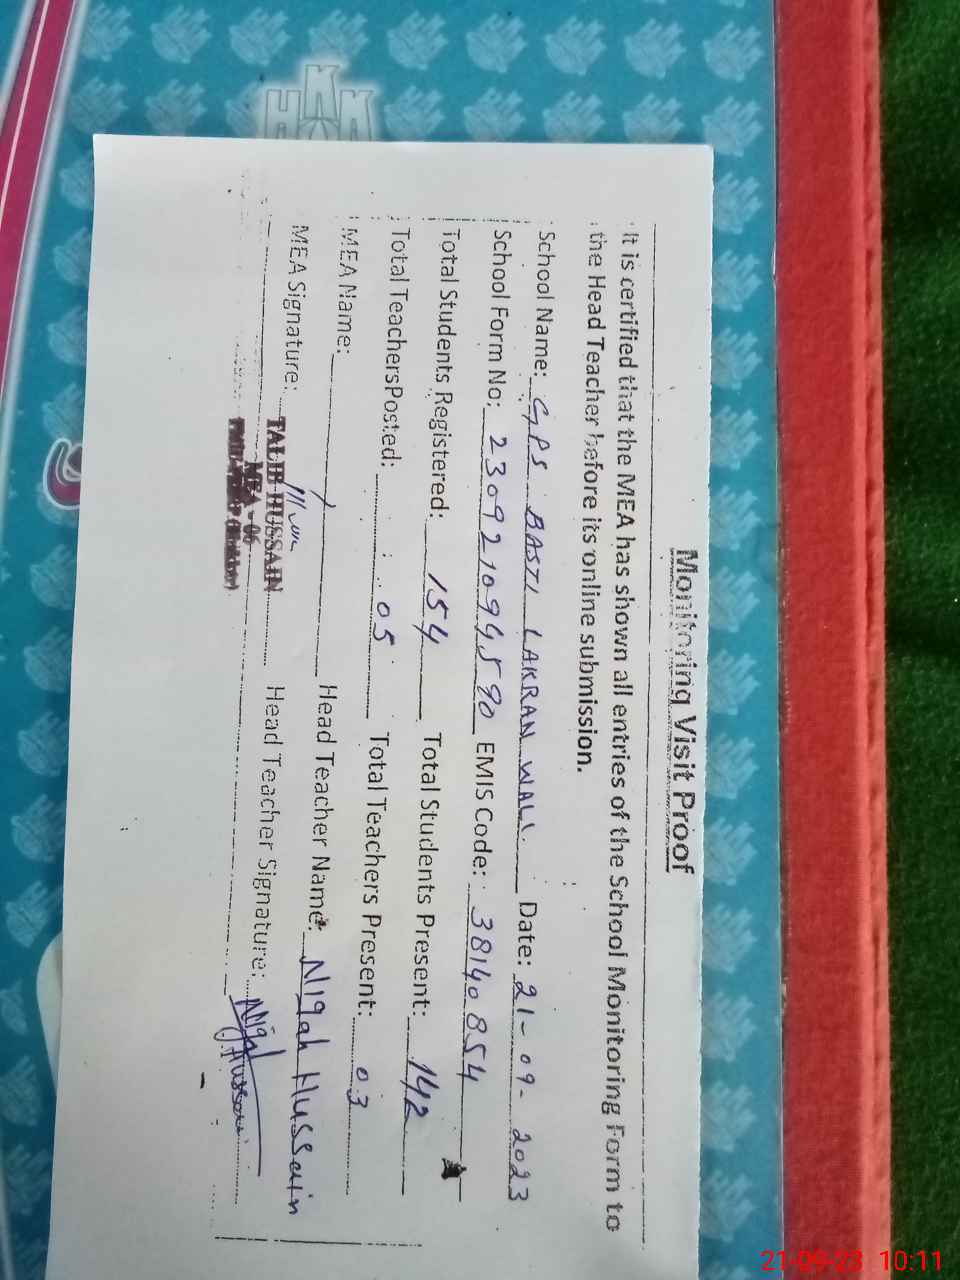 Monitoring Visit Proof
It is certified that the MEA has shown all entries of the School Monitoring Form to
the Head Teacher before its online submission.
School Name: GPS BASTI LAKRAN WALI Date: 21-09-2023
School Form No: 230921094590 EMIS Code: 38140854
Total Students Registered: 154 Total Students Present: 142
Total TeachersPosted: 05 Total Teachers Present: 03
MEA Name: Head Teacher Name: Nigah Hussain
MEA Signature: Head Teacher Signature: Nigah Hussain
TALIB HUSSAIN
MEA - 06
21-09-23 10:11